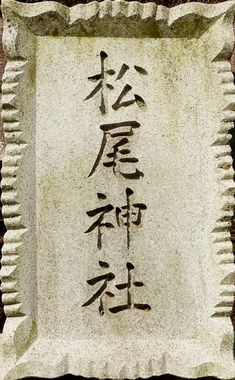 松尾神社